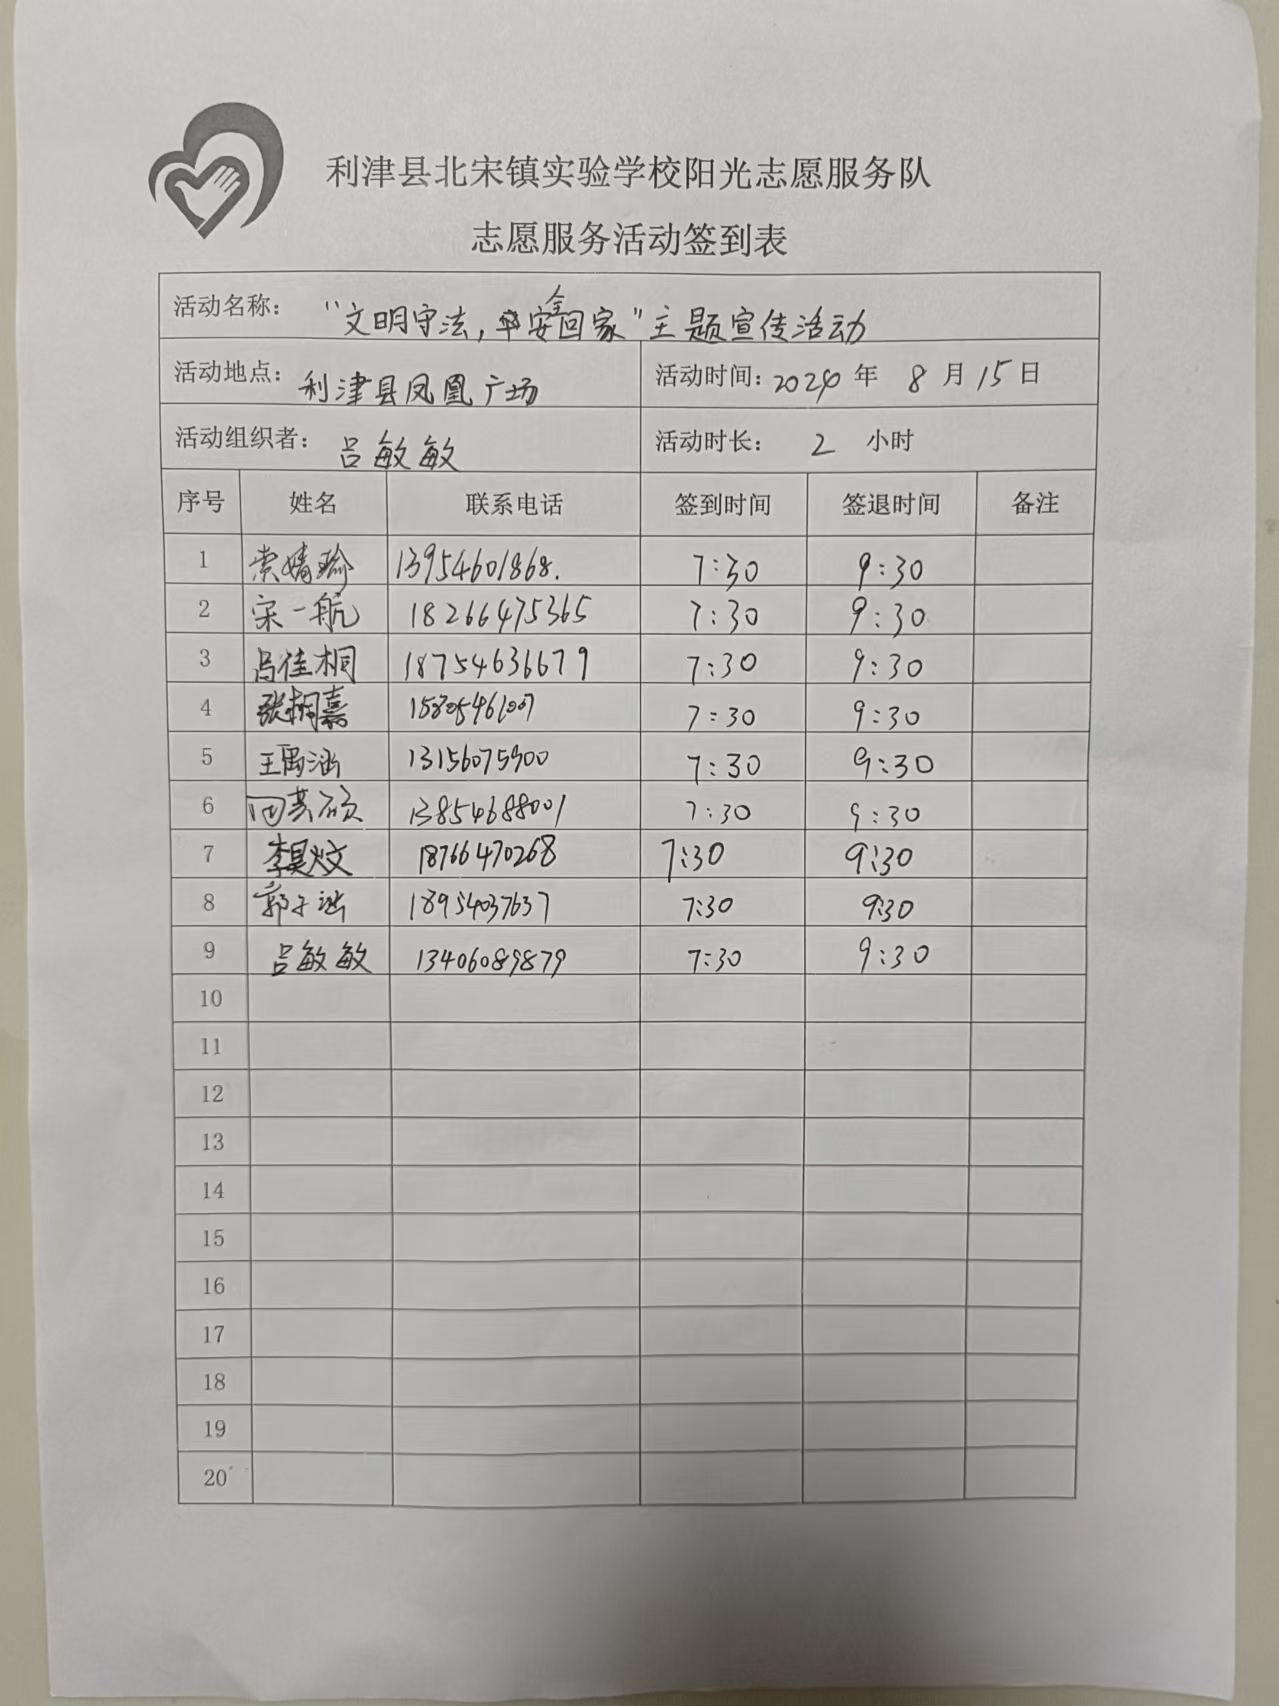 利津县北宋镇实验学校阳光志愿服务队
志愿服务活动签到表
活动名称： “文明守法，安全回家”主题宣传活动
活动地点： 利津县凤凰广场 活动时间：2024 年 8 月 15 日
活动组织者： 吕敏敏 活动时长： 2 小时
序号 姓名 联系电话 签到时间 签退时间 备注
1 崇婧瑜 13954601868. 7:30 9:30
2 宋一航 18266475365 7:30 9:30
3 吕佳桐 18754636679 7:30 9:30
4 张桐嘉 7:30 9:30
5 王禹涵 13156075900 7:30 9:30
6 13854688001 7:30 9:30
7 李昊炆 18766470268 7:30 9:30
8 郭子涵 18954037637 7:30 9:30
9 吕敏敏 13406089879 7:30 9:30
10
11
12
13
14
15
16
17
18
19
20